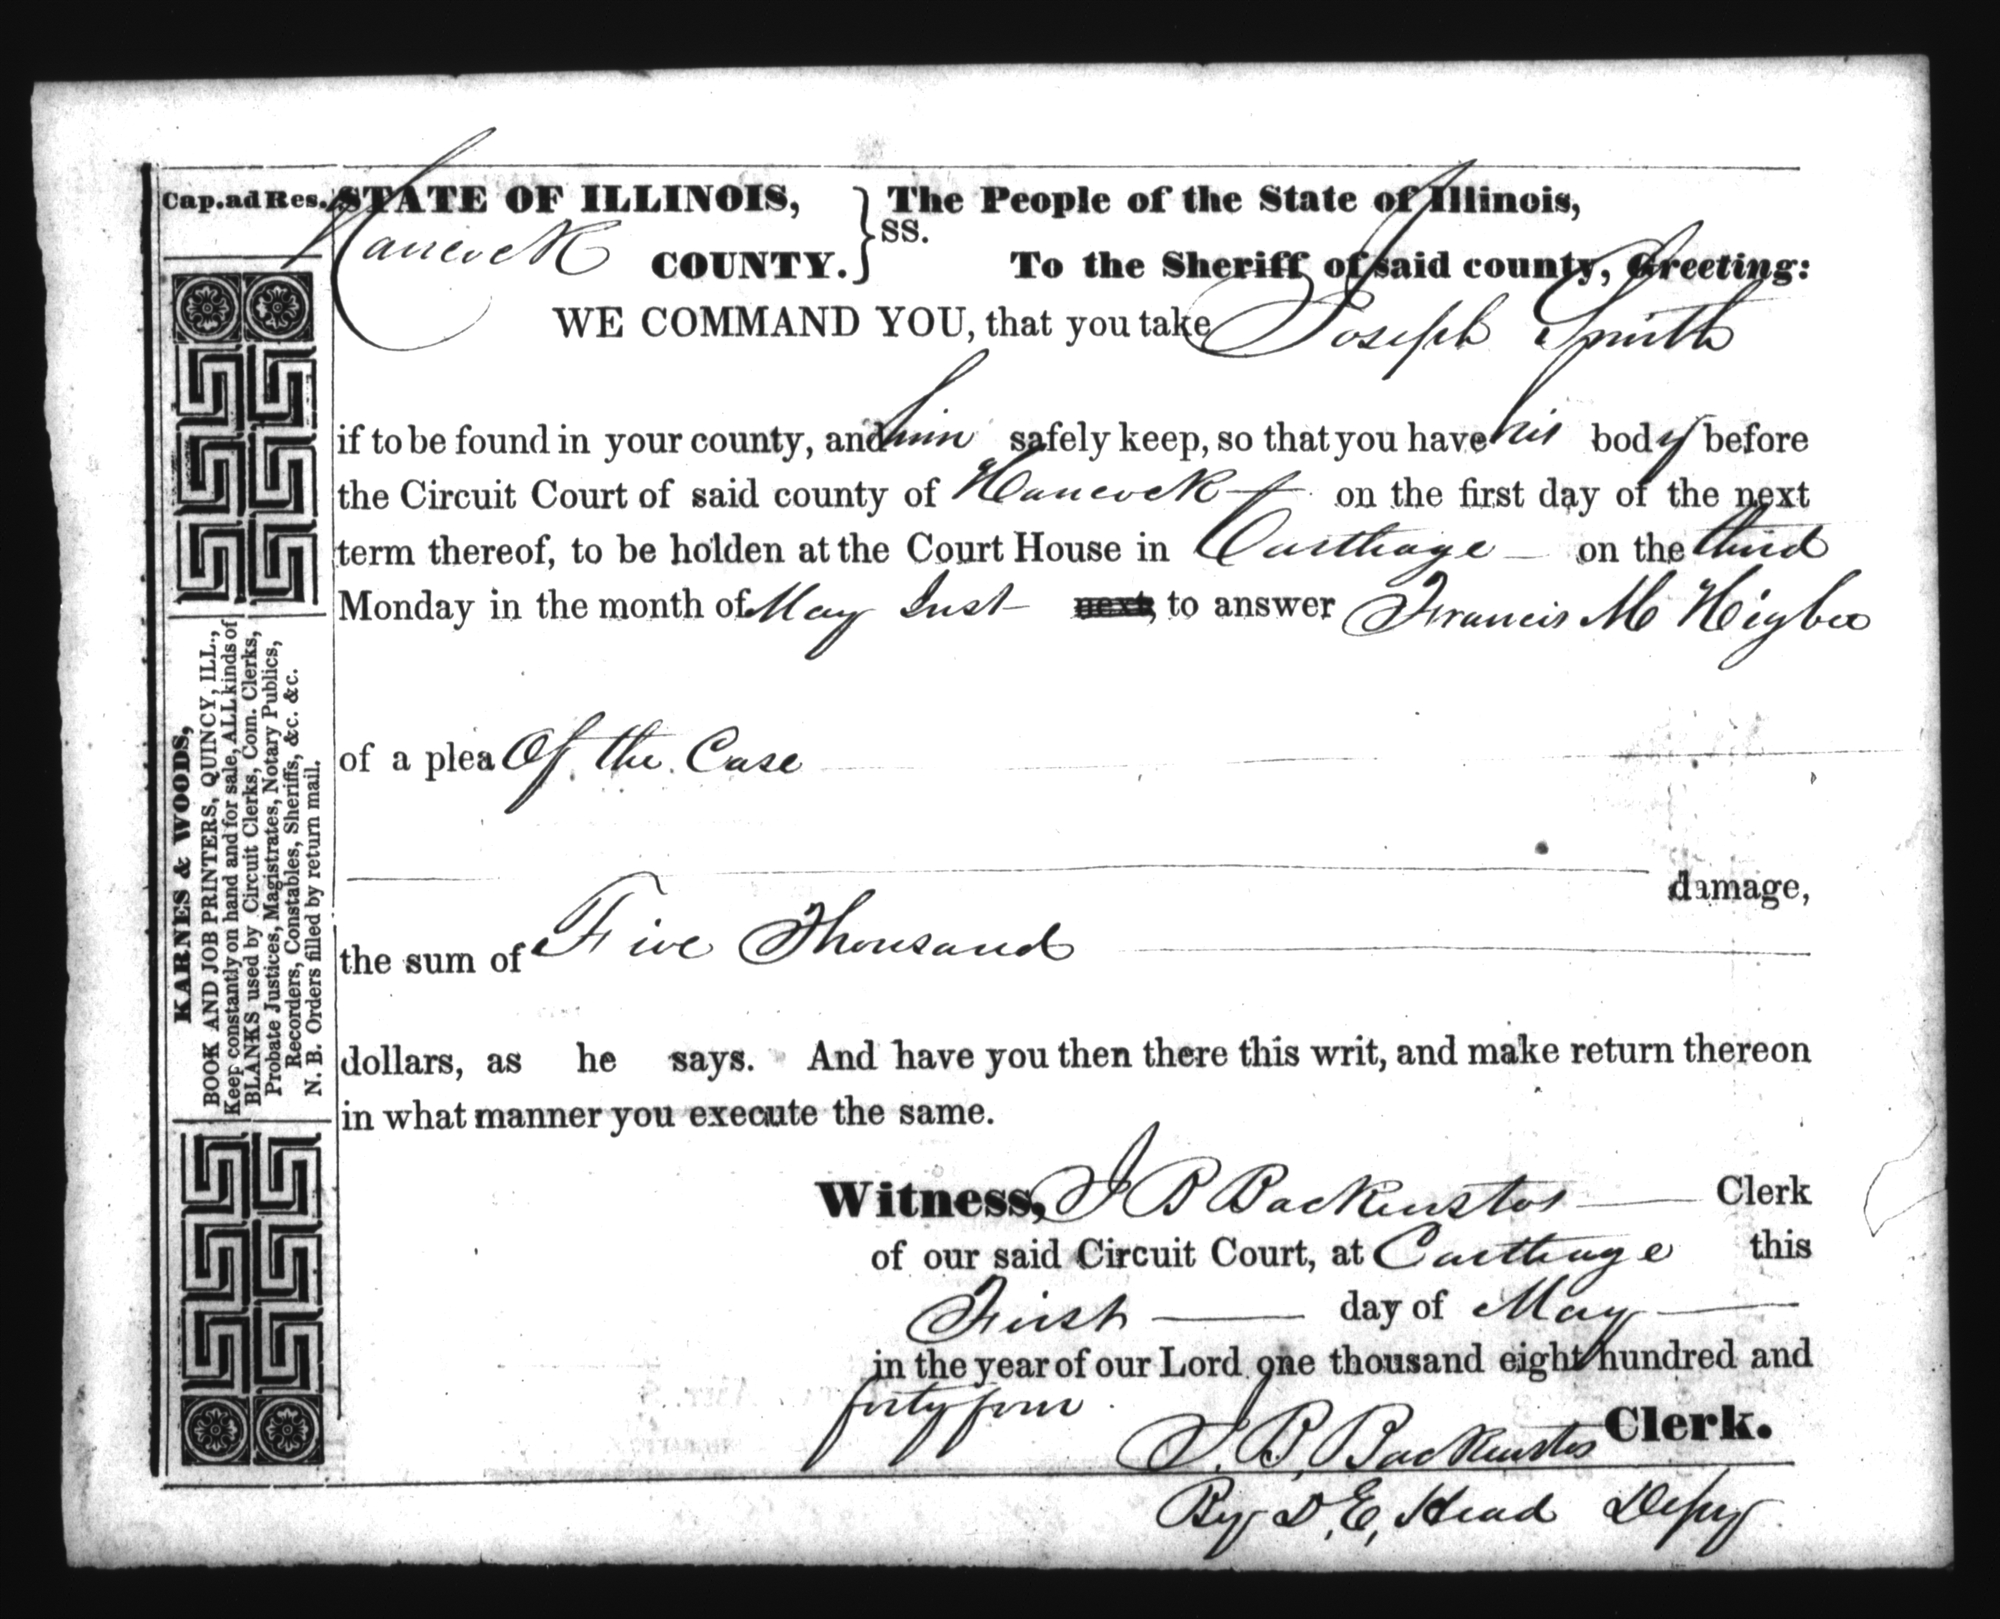 Cap. ad Res. STATE OF ILLINOIS, } The People of the State of Illinois,
SS.
Hancock COUNTY. To the Sheriff of said county, Greeting:
WE COMMAND YOU, that you take Joseph Smith
if to be found in your county, and him safely keep, so that you have his body before
the Circuit Court of said county of Hancock on the first day of the next
term thereof, to be holden at the Court House in Carthage on the third
Monday in the month of May Inst next, to answer Francis M Higbee
of a plea Of the Case
damage,
the sum of Five Thousand
dollars, as he says. And have you then there this writ, and make return thereon
in what manner you execute the same.
Witness, J B Backenstos Clerk
of our said Circuit Court, at Carthage this
First day of May
in the year of our Lord one thousand eight hundred and
forty four.
J. B. Backenstos Clerk.
By D. E. Head Depy
KARNES & WOODS,
BOOK AND JOB PRINTERS, QUINCY, ILL.,
Keep constantly on hand and for sale, ALL kinds of
BLANKS used by Circuit Clerks, Com. Clerks,
Probate Justices, Magistrates, Notary Publics,
Recorders, Constables, Sheriffs, &c. &c.
N. B. Orders filled by return mail.